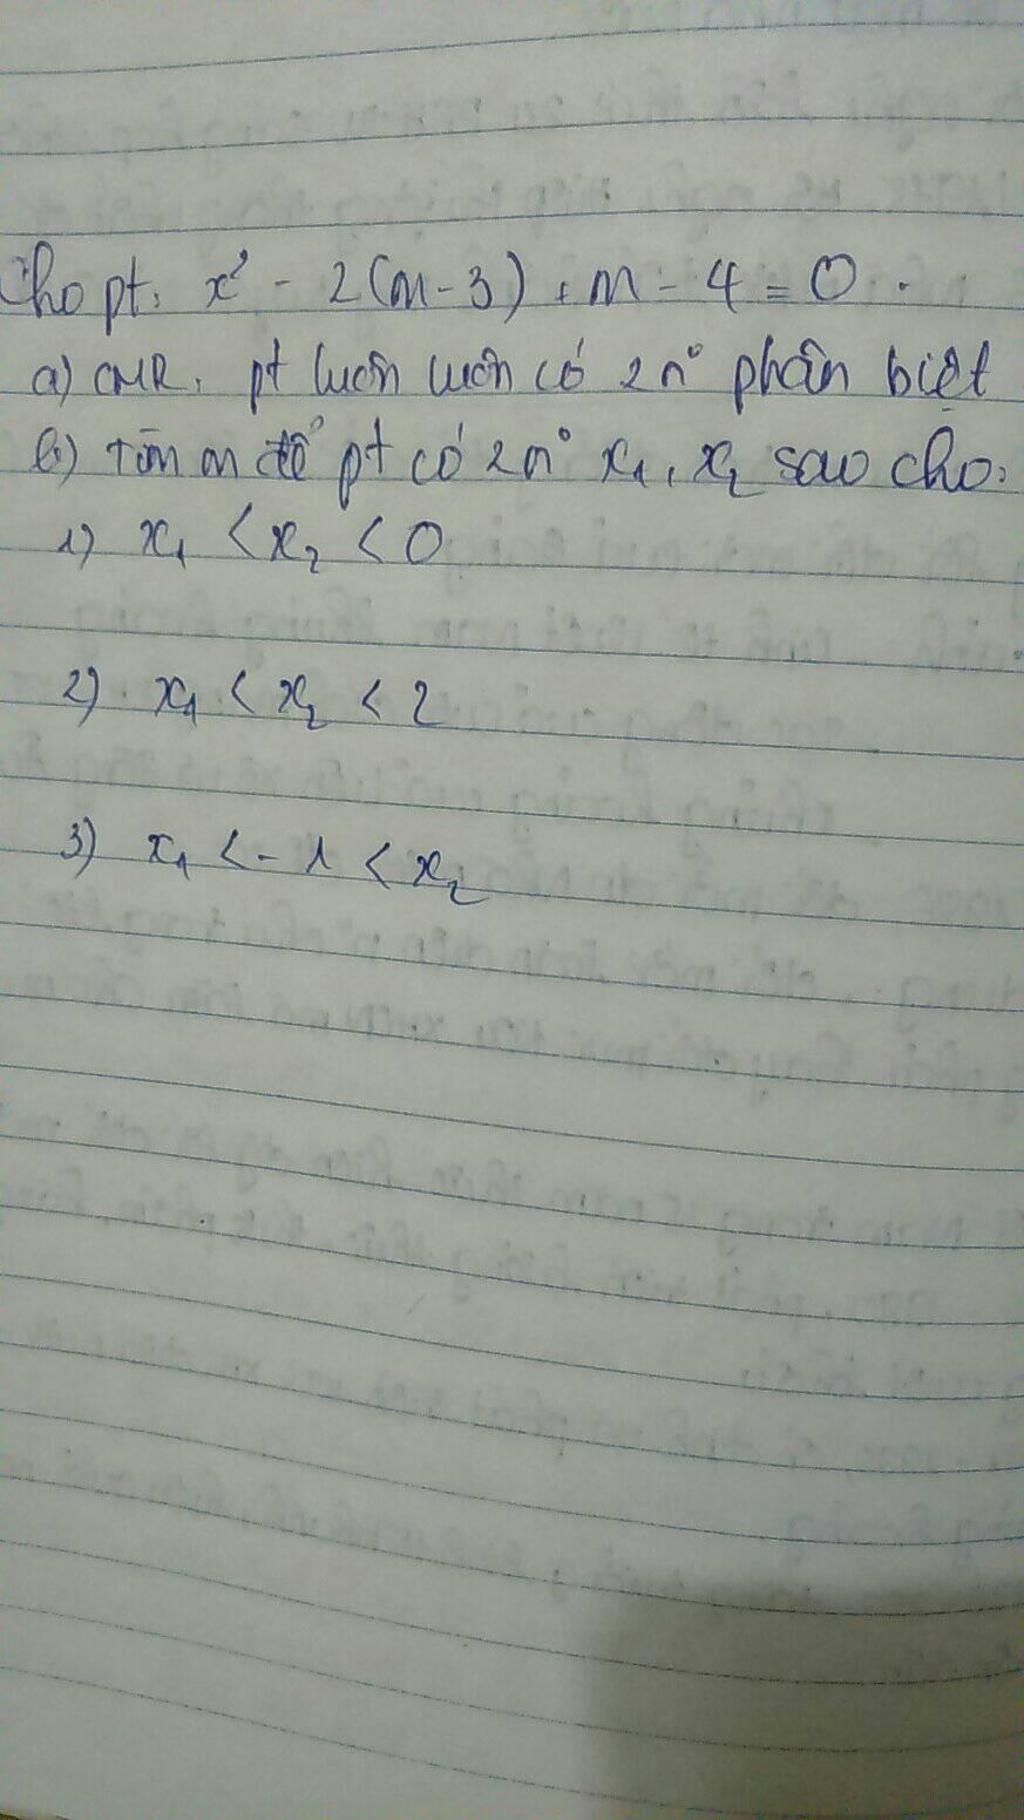 Cho pt: x² - 2(m-3) + m - 4 = 0.
a) CMR: pt luôn luôn có 2 n° phân biệt
b) Tìm m để pt có 2n° x₁, x₂ sao cho:
1) x₁ < x₂ < 0
2) x₁ < x₂ < 2
3) x₁ < -1 < x₂